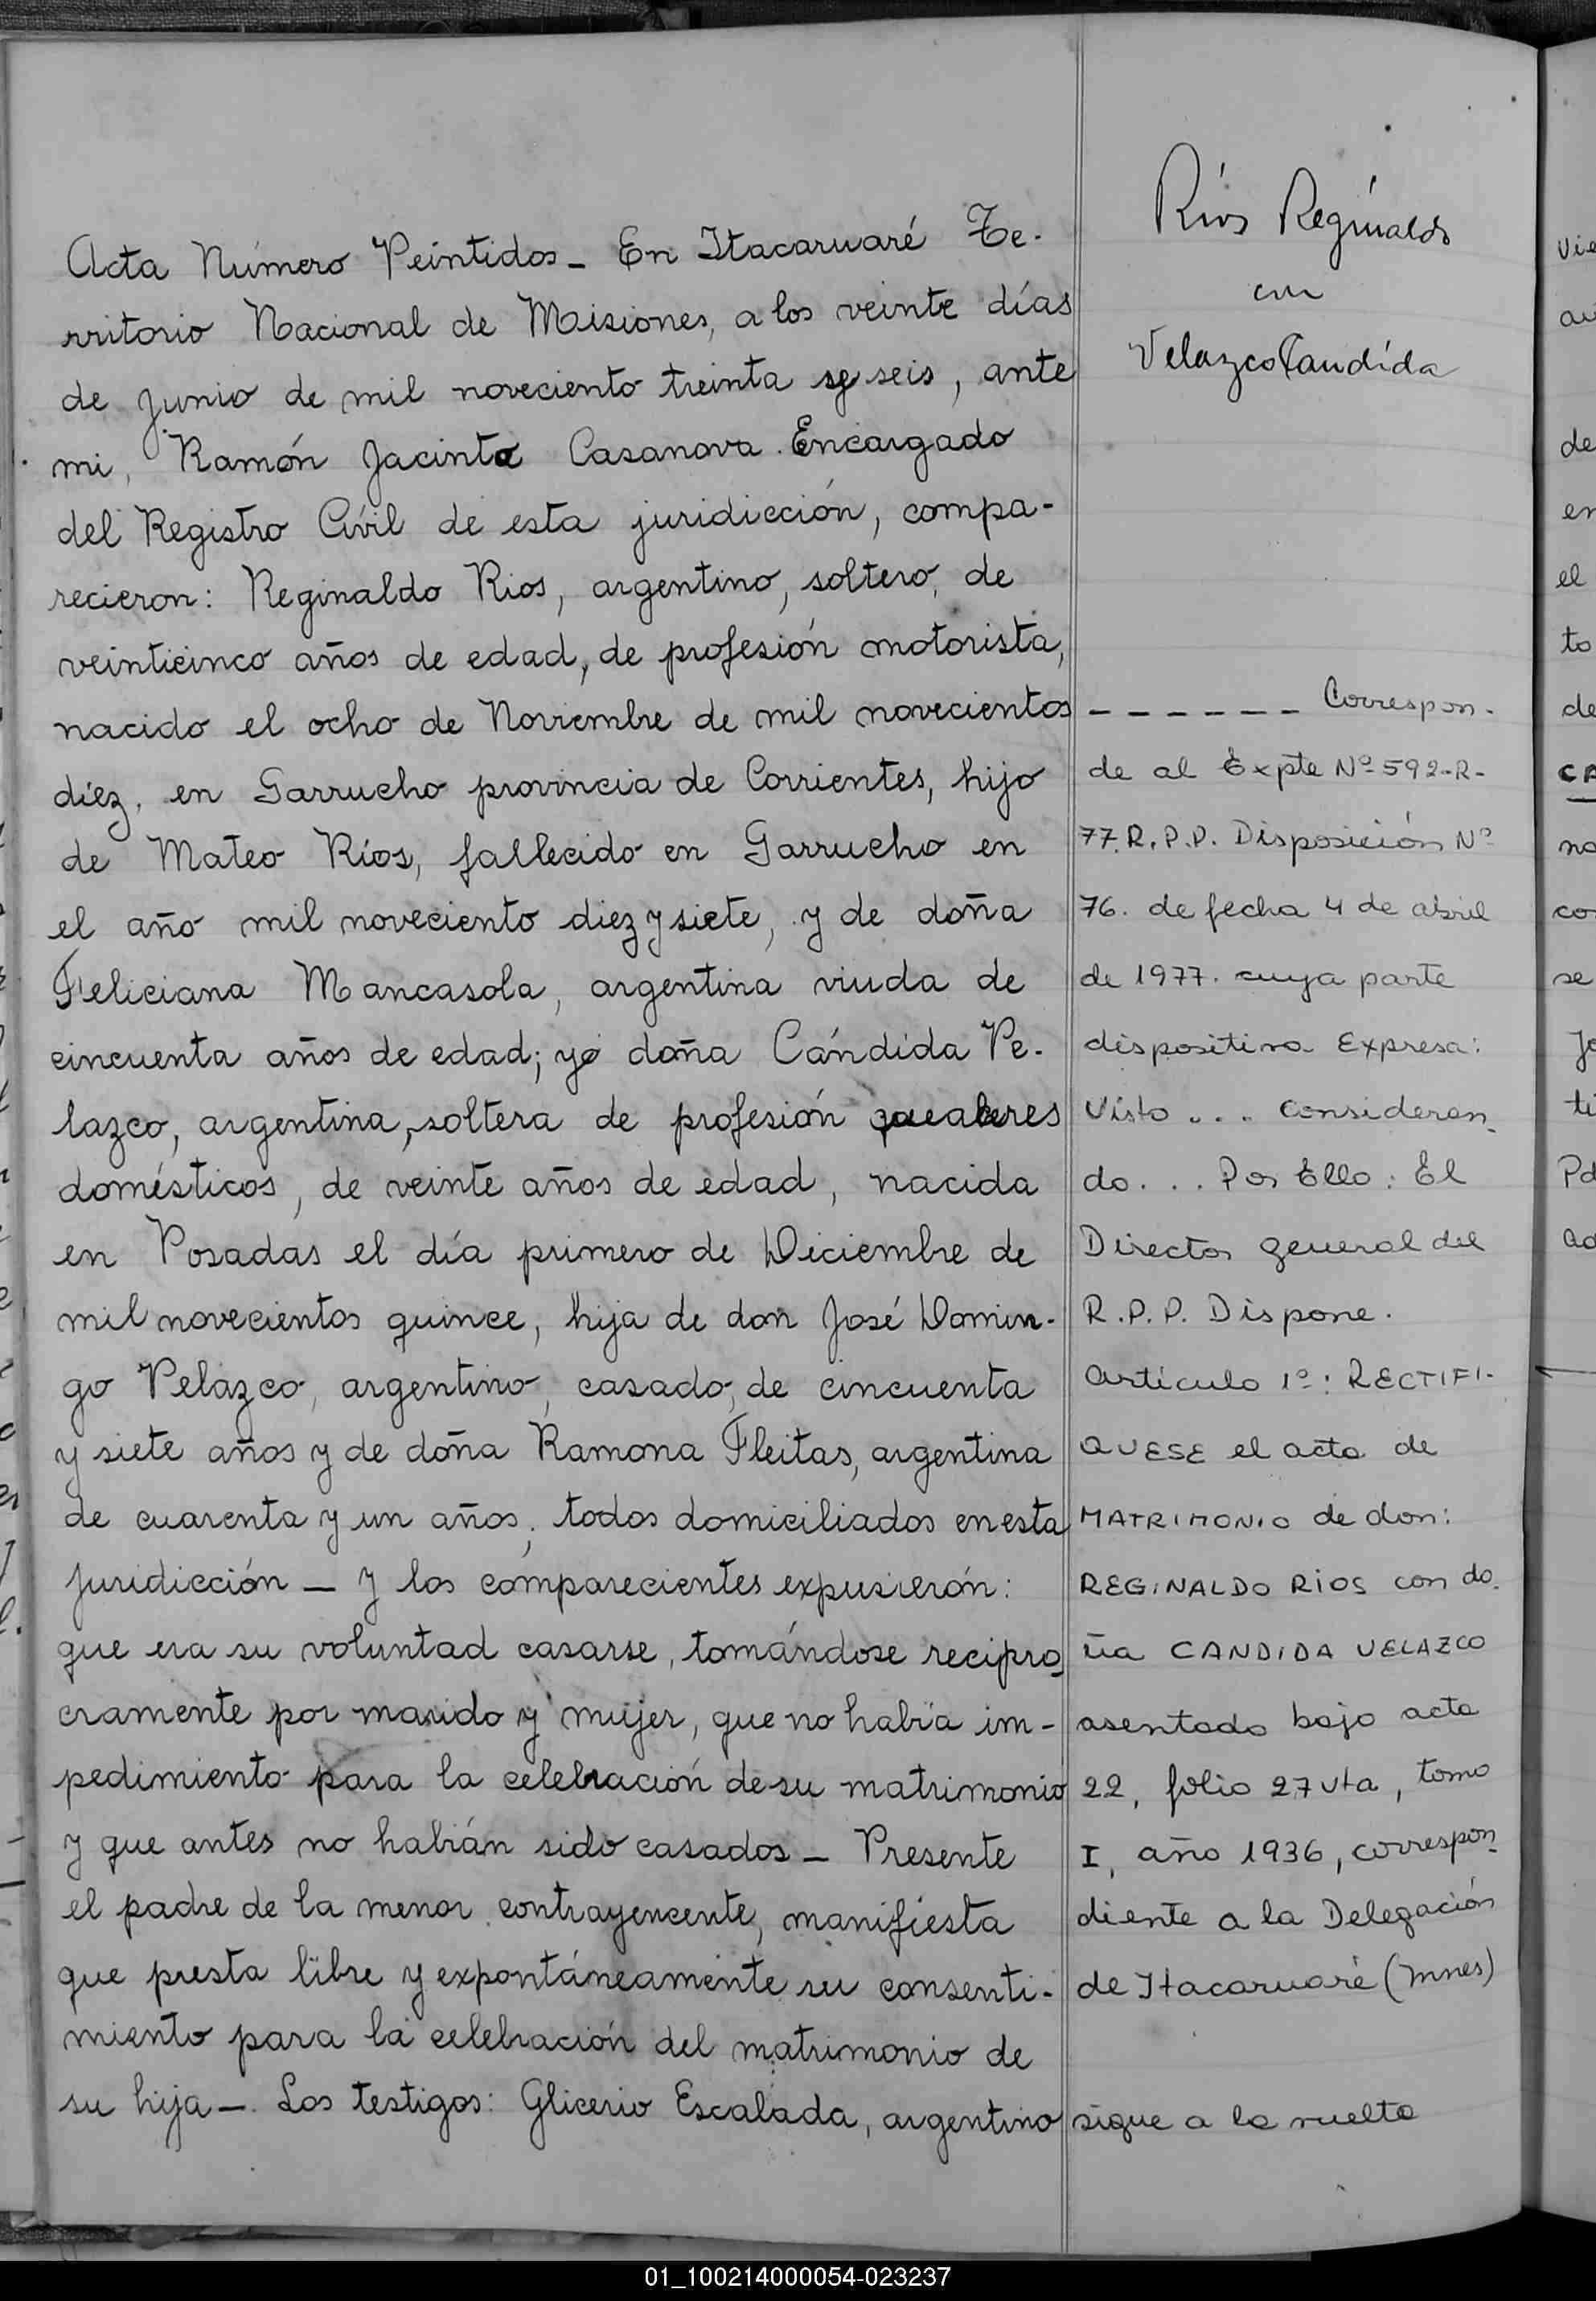 Acta Número Veintidos - En Itacaruaré Te-
rritorio Nacional de Misiones, a los veinte días
de Junio de mil noveciento treinta y seis, ante
mi, Ramón Jacinto Casanova Encargado
del Registro Civil de esta juridicción, compa-
recieron: Reginaldo Rios, argentino, soltero, de
veinticinco años de edad, de profesión motorista,
nacido el ocho de Noviembre de mil novecientos
diéz, en Garrucho provincia de Corrientes, hijo
de Mateo Ríos, fallecido en Garrucho en
el año mil noveciento diez y siete, y de doña
Feliciana Mancasola, argentina viuda de
cincuenta años de edad; y doña Cándida Ve-
lazco, argentina, soltera de profesión
domésticos, de veinte años de edad, nacida
en Posadas el día primero de Diciembre de
mil novecientos quince, hija de don José Domin-
go Velázco, argentino, casado, de cincuenta
y siete años y de doña Ramona Fleitas, argentina
de cuarenta y un años, todos domiciliados en esta
juridicción - Y los comparecientes expusierón:
que era su voluntad casarse, tomándose recipro-
cramente por marido y mujer, que no había im-
pedimiento para la celebración de su matrimonio
y que antes no habián sido casados - Presente
el padre de la menor contrayencente, manifiesta
que presta libre y expontáneamente su consenti-
miento para la celebración del matrimonio de
su hija -. Los testigos: Glicerio Escalada, argentino
Ríos Reginaldo
con
Velazco Candída
- - - - - - - Correspon-
de al Expte Nº 592-R-
77. R.P.P. Disposición Nº
76. de fecha 4 de abril
de 1977. cuya parte
dispositiva Expresa:
Visto ... Consideran-
do... Por Ello: El
Director general del
R.P.P. Dispone.
Artículo 1º: RECTIFI-
QUESE el acta de
MATRIMONIO de don:
REGINALDO RIOS con do-
ña CANDIDA VELAZCO
asentado bajo acta
22, folio 27 vta, tomo
I, año 1936, correspon-
diente a la Delegación
de Itacaruaré (Mnes)
sigue a la vuelta
01_100214000054-023237